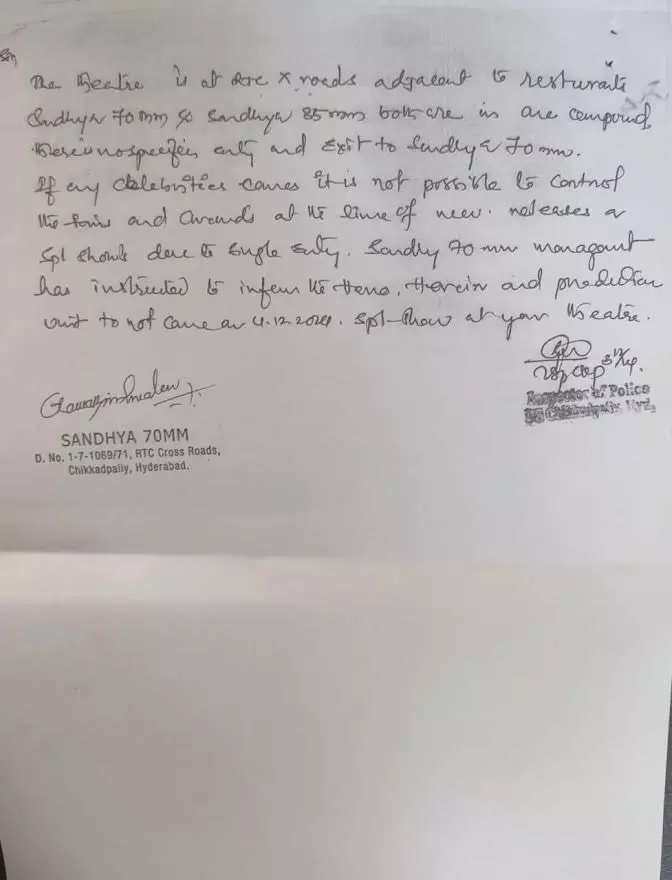 Sir,
The theatre is at RTC X roads adjacent to resturants
Sandhya 70 mm so Sandhya 35 mm both are in one compound
there is no specific entry and exit to Sandhya 70 mm.
If any celebrities comes it is not possible to control
the fans and crowds at the time of new releases or
spl shows due to single entry. Sandhy 70 mm managment
has instructed to inform the Hero, Heroin and production
unit to not come on 4.12.2024. Spl-Show at your theatre.
Inspector of Police
PS Chikkadpally, Hyd.
SANDHYA 70MM
D. No. 1-7-1069/71, RTC Cross Roads,
Chikkadpally, Hyderabad.